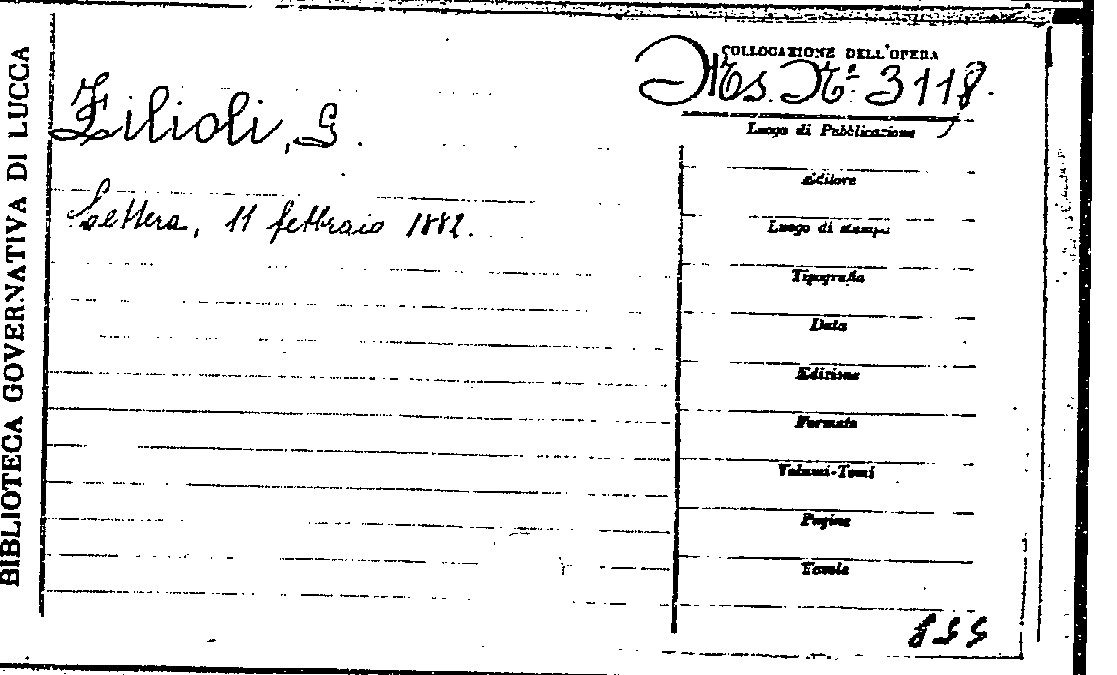 BIBLIOTECA GOVERNATIVA DI LUCCA
Filioli, G.
Lettera, 11 febbraio 1882.
COLLOCAZIONE DELL'OPERA
Ms. Nº 3118.
Luogo di Pubblicazione
Editore
Luogo di stampa
Tipografia
Data
Edizione
Formato
Volumi-Tomi
Pagine
Tavole